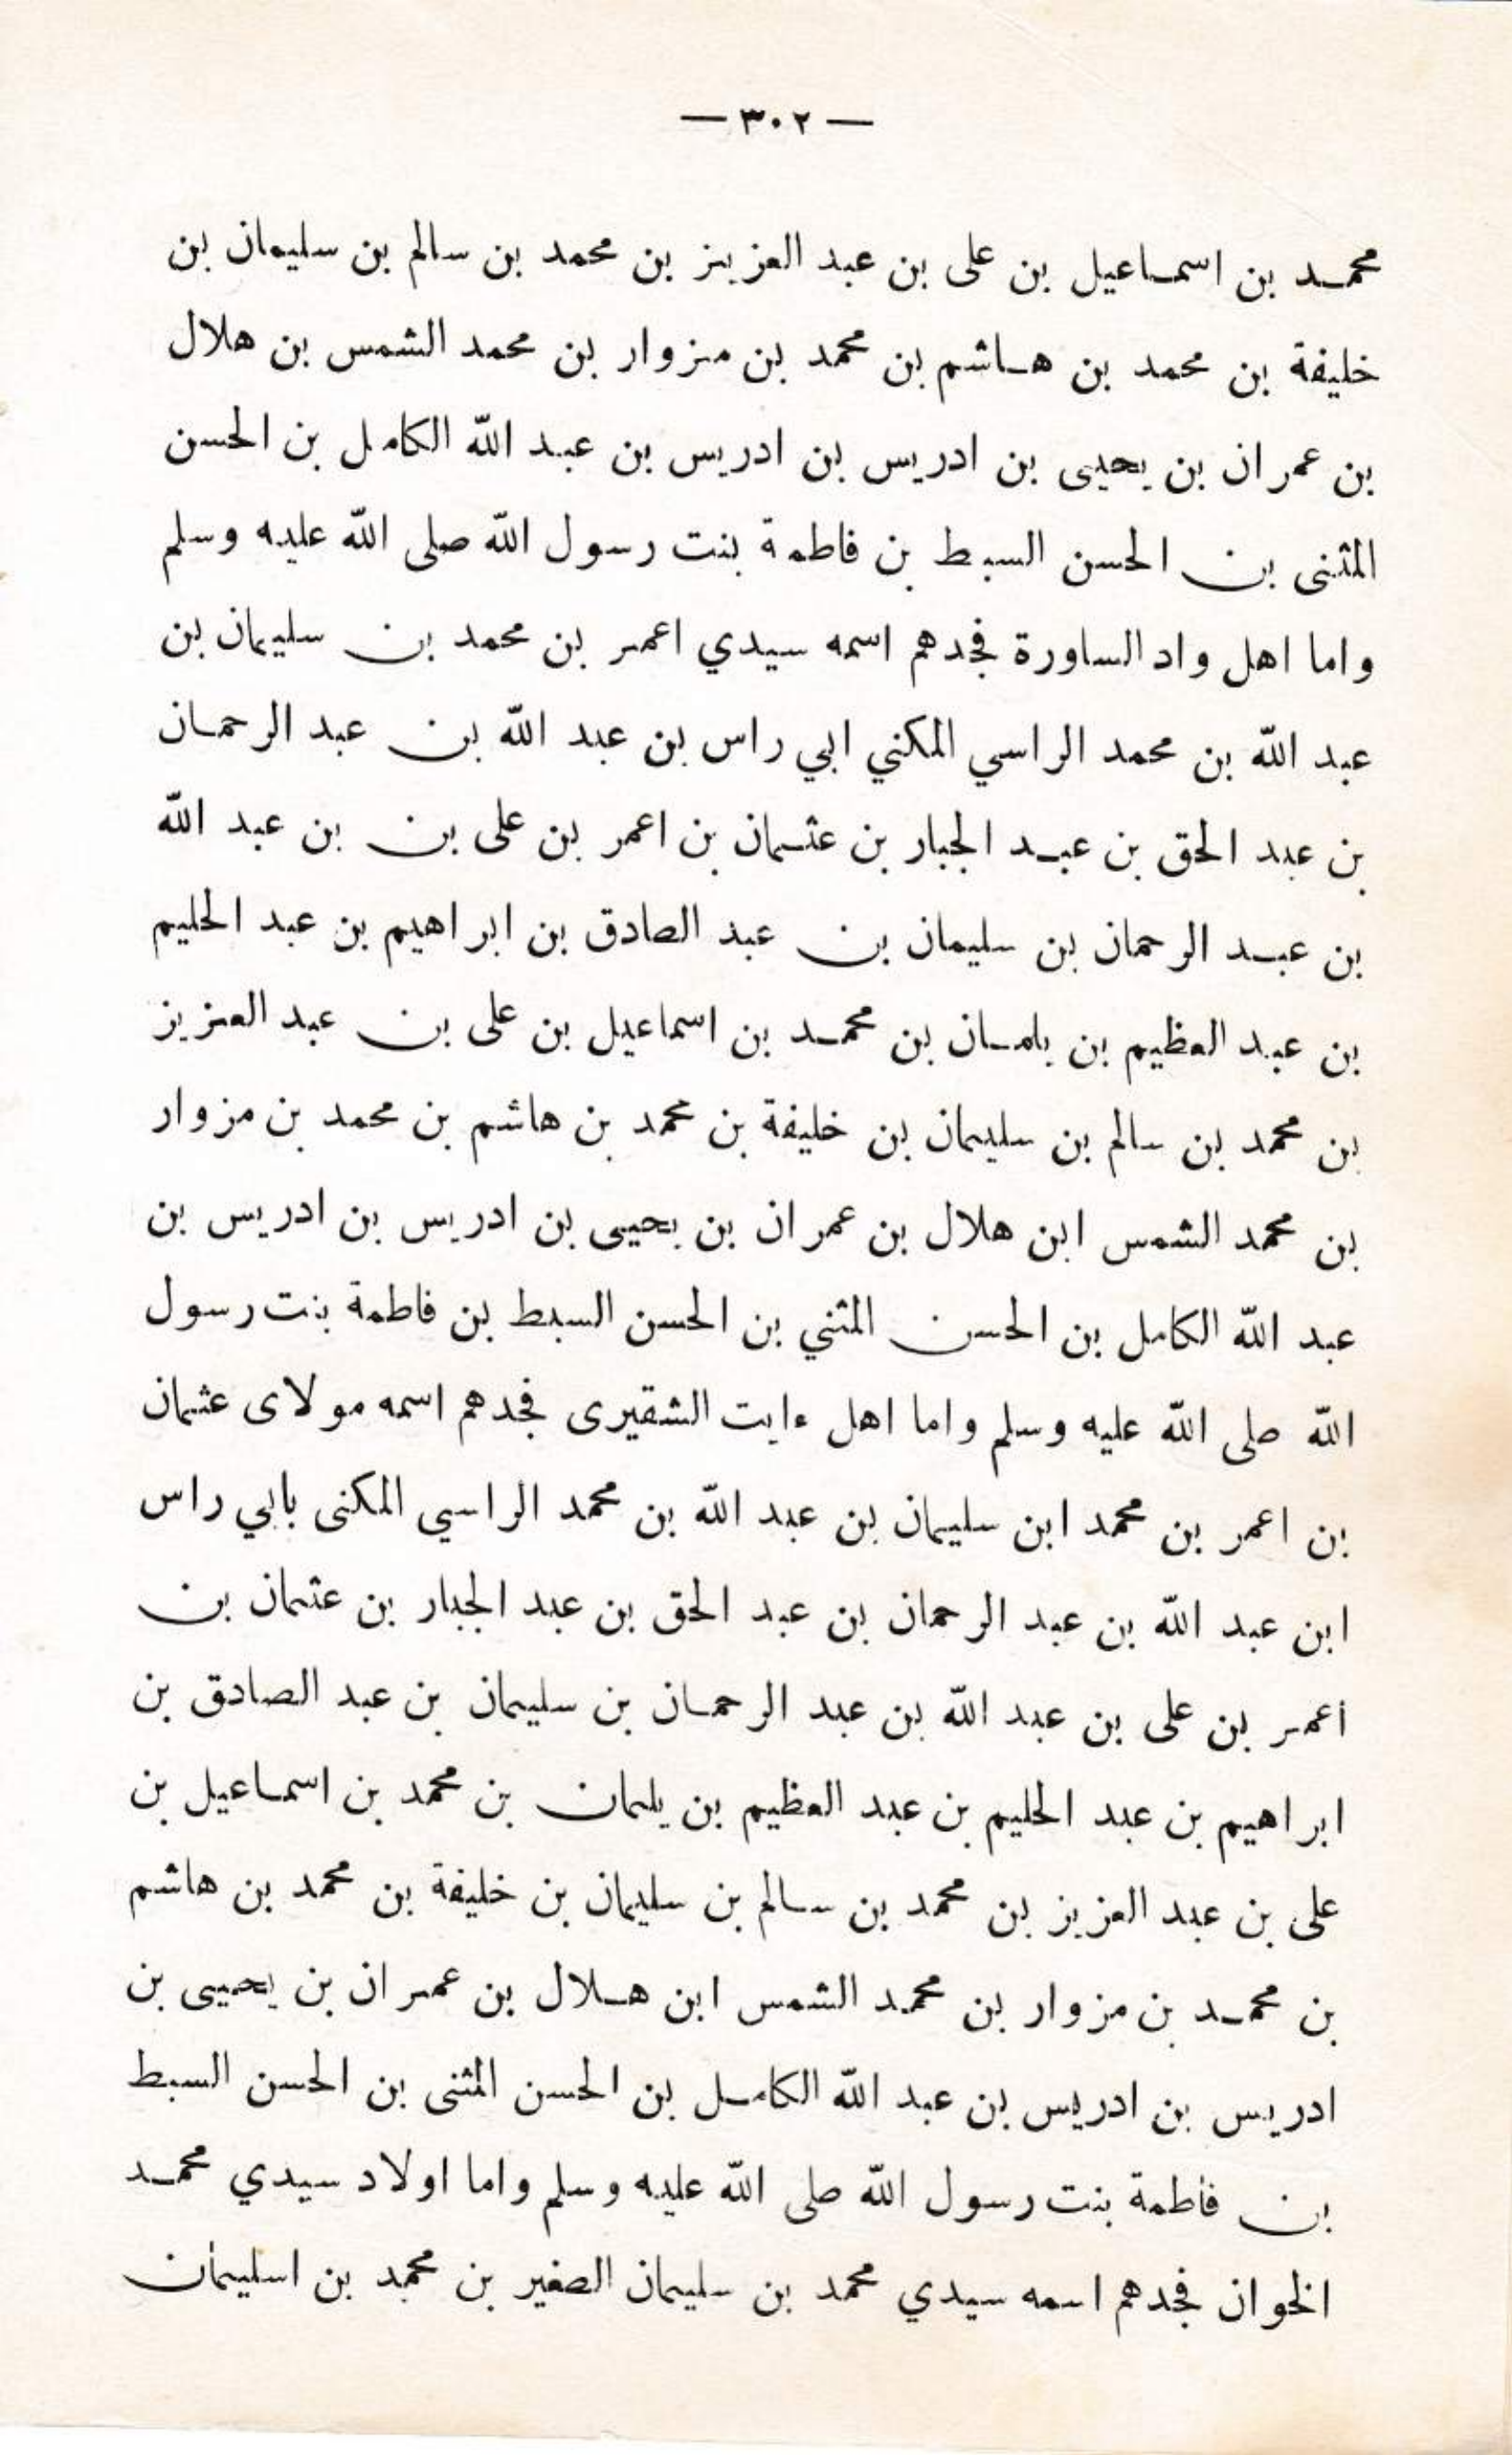 — ٣٠٢ —
محمد بن اسماعيل بن على بن عبد العزيز بن محمد بن سالم بن سليمان بن
خليفة بن محمد بن هاشم بن محمد بن مزوار بن محمد الشمس بن هلال
بن عمران بن يحيى بن ادريس بن ادريس بن عبد الله الكامل بن الحسن
المثنى بن الحسن السبط بن فاطمة بنت رسول الله صلى الله عليه وسلم
واما اهل واد الساورة فجدهم اسمه سيدي اعمر بن محمد بن سليمان بن
عبد الله بن محمد الراسي المكني ابي راس بن عبد الله بن عبد الرحمان
بن عبد الحق بن عبد الجبار بن عثمان بن اعمر بن على بن بن عبد الله
بن عبد الرحمان بن سليمان بن عبد الصادق بن ابراهيم بن عبد الحليم
بن عبد العظيم بن يامان بن محمد بن اسماعيل بن على بن عبد العزيز
بن محمد بن سالم بن سليمان بن خليفة بن محمد بن هاشم بن محمد بن مزوار
بن محمد الشمس ابن هلال بن عمران بن يحيى بن ادريس بن ادريس بن
عبد الله الكامل بن الحسن المثني بن الحسن السبط بن فاطمة بنت رسول
الله صلى الله عليه وسلم واما اهل ءايت الشقيرى فجدهم اسمه مولاى عثمان
بن اعمر بن محمد ابن سليمان بن عبد الله بن محمد الراسي المكنى بابي راس
ابن عبد الله بن عبد الرحمان بن عبد الحق بن عبد الجبار بن عثمان بن
اعمر بن على بن عبد الله بن عبد الرحمان بن سليمان بن عبد الصادق بن
ابراهيم بن عبد الحليم بن عبد العظيم بن يلمان بن محمد بن اسماعيل بن
على بن عبد العزيز بن محمد بن سالم بن سليمان بن خليفة بن محمد بن هاشم
بن محمد بن مزوار بن محمد الشمس ابن هلال بن عمران بن يحيى بن
ادريس بن ادريس بن عبد الله الكامل بن الحسن المثنى بن الحسن السبط
بن فاطمة بنت رسول الله صلى الله عليه وسلم واما اولاد سيدي محمد
الخوان فجدهم اسمه سيدي محمد بن سليمان الصغير بن محمد بن اسليمان